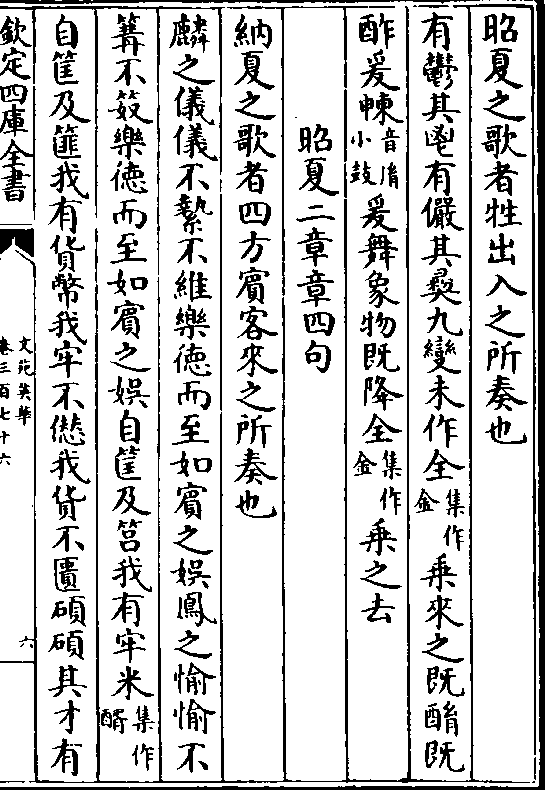 昭夏之歌者牲出入之所奏也
有鬱其鬯有儼其彞九變未作全集作金乗來之既醑既
酢爰朄音胤小鼓爰舞象物既降全集作金乗之去
昭夏二章章四句
納夏之歌者四方賔客來之所奏也
麟之儀儀不縶不維樂徳而至如賔之娯鳳之愉愉不
篝不笯樂徳而至如賔之娯自筐及筥我有牢米集作醑
自筐及篚我有貨幣我牢不愆我貨不匱碩碩其才有
欽定四庫全書
文苑英華
卷三百七十六
六